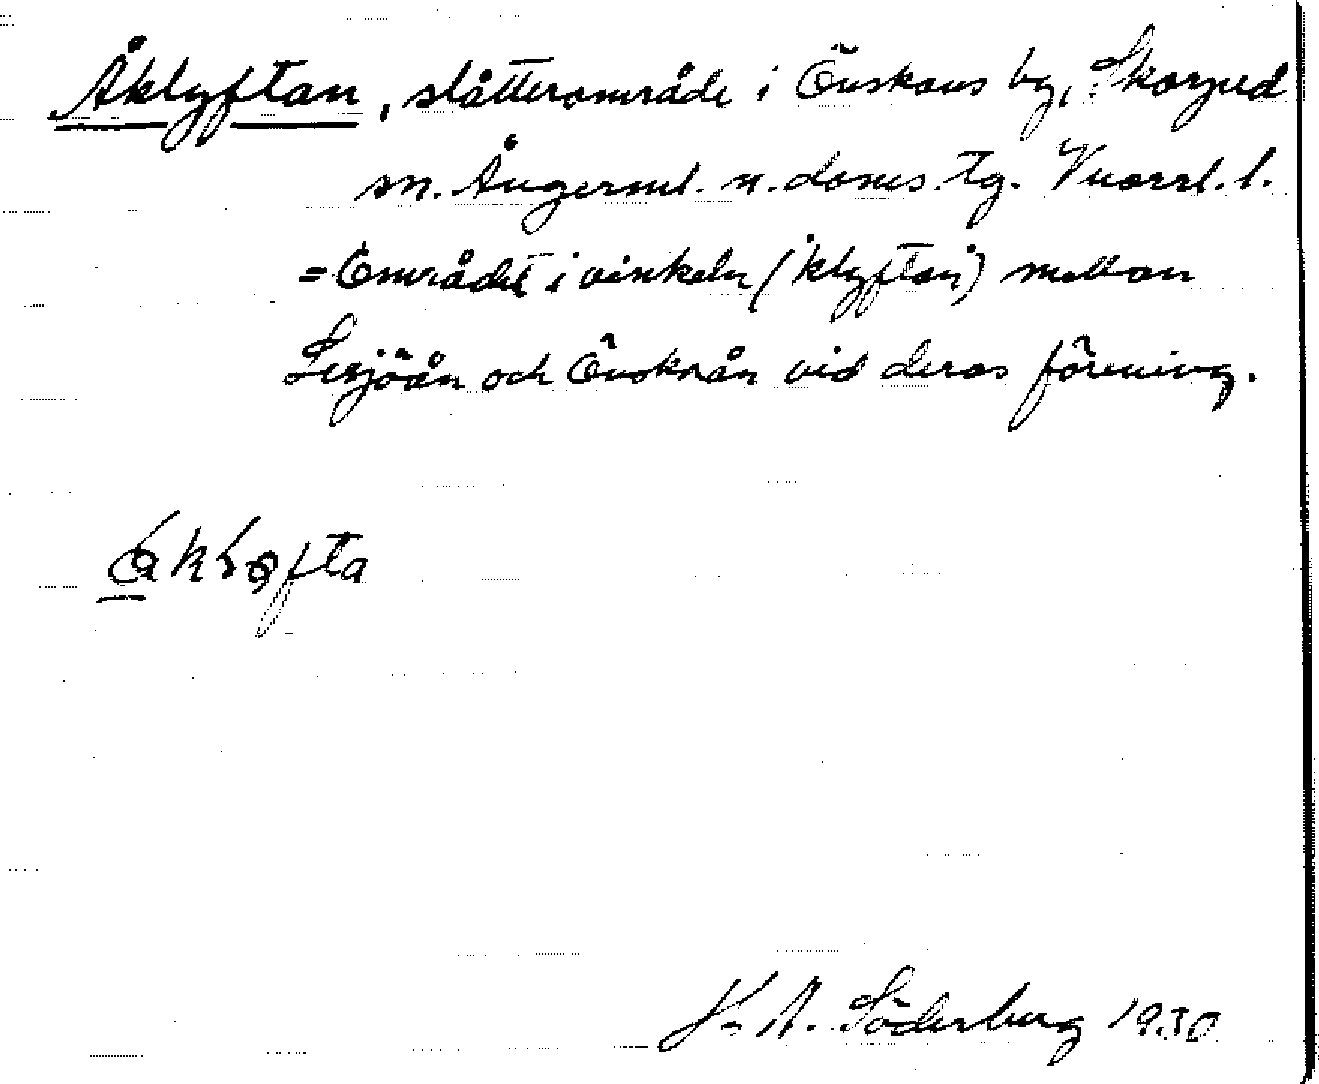 Åklyftan, slåtterområde i Önskans by, Skorped
sn. Ångerml. n. doms. tg. Vnorrl. l.
= Området i vinkeln ('klyftan') mellan
Lesjöån och Önskaån vid deras förening.
K. A. Söderberg 1930